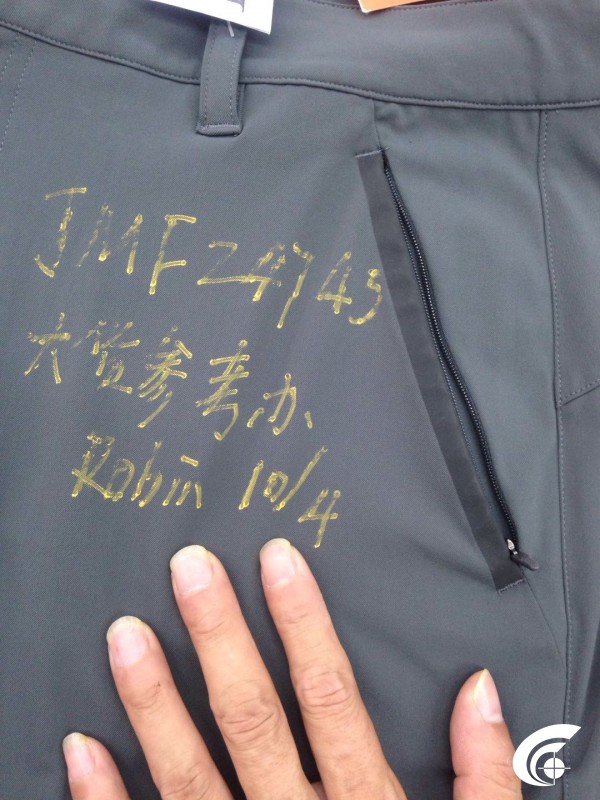 JMF24745
大货参考办
Robin 10/4